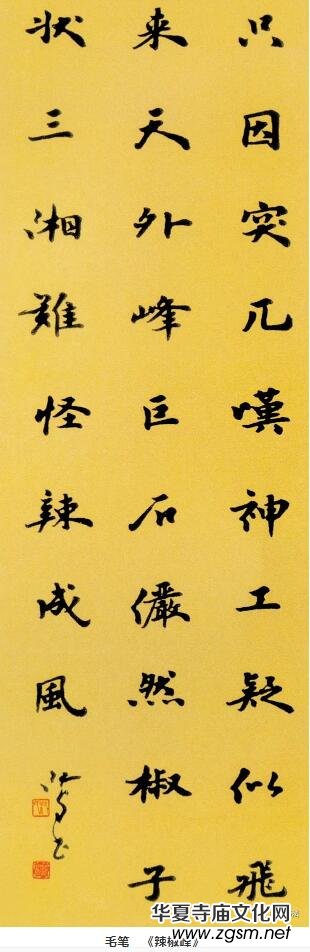 只因突兀嘆神工疑似飛
来天外峰巨石儼然椒子
状三湘難怪辣成風
毛笔 《辣椒峰》
华夏寺庙文化网
www.zgsm.net